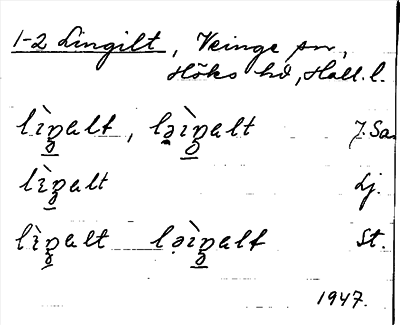 1-2 Lingilt, Veinge sn,
Höks hd, Hall. l.
lìŋalt, ləìŋalt J. Sa
lìŋalt Lj.
lìŋalt ləìŋalt St.
1947.